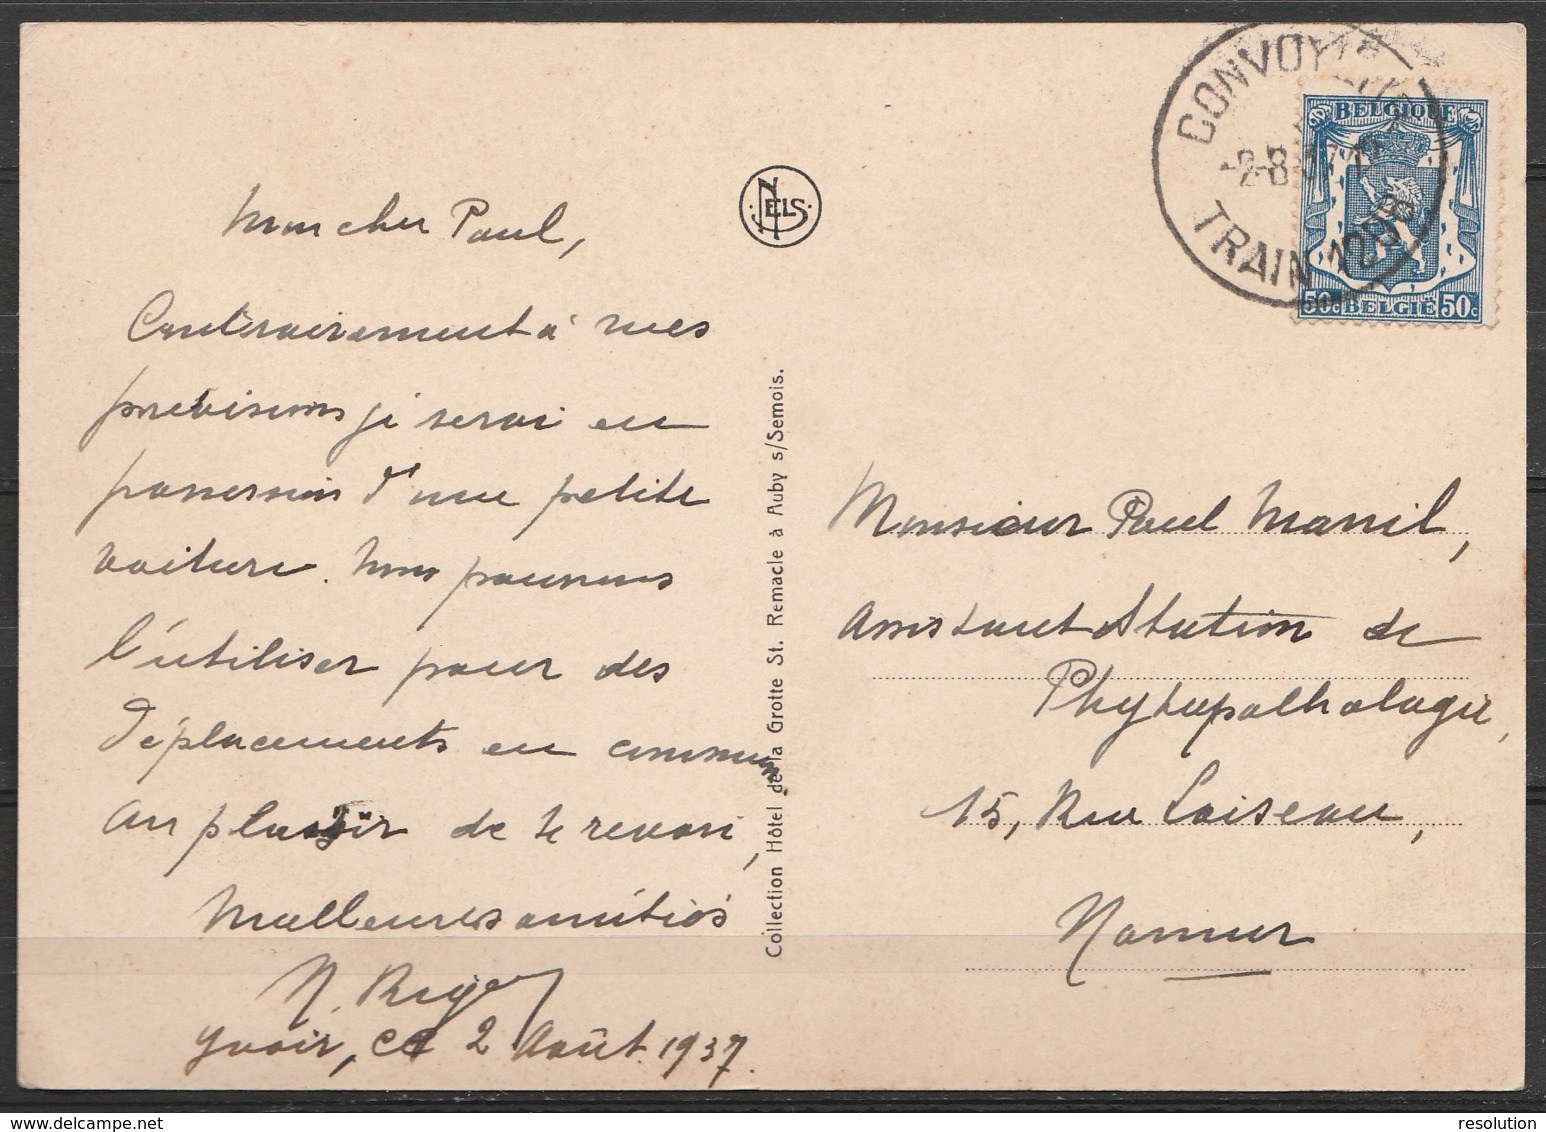 Mon cher Paul,
Contrairement à mes
prévisions je serai en
possession d'une petite
voiture. Nous pourrons
l'utiliser pour des
déplacements en commun.
Au plaisir de te revoir,
Meilleures amitiés
Yvoir, ce 2 Août 1937.
NELS
Collection Hôtel de la Grotte St. Remacle à Auby s/Semois.
CONVOY
-2-8-37
TRAIN 1208
BELGIQUE
50c BELGIE 50c
Monsieur Paul Manil,
Assistant Station de
Phytopathologie,
15, Rue Loiseau,
Namur
resolution